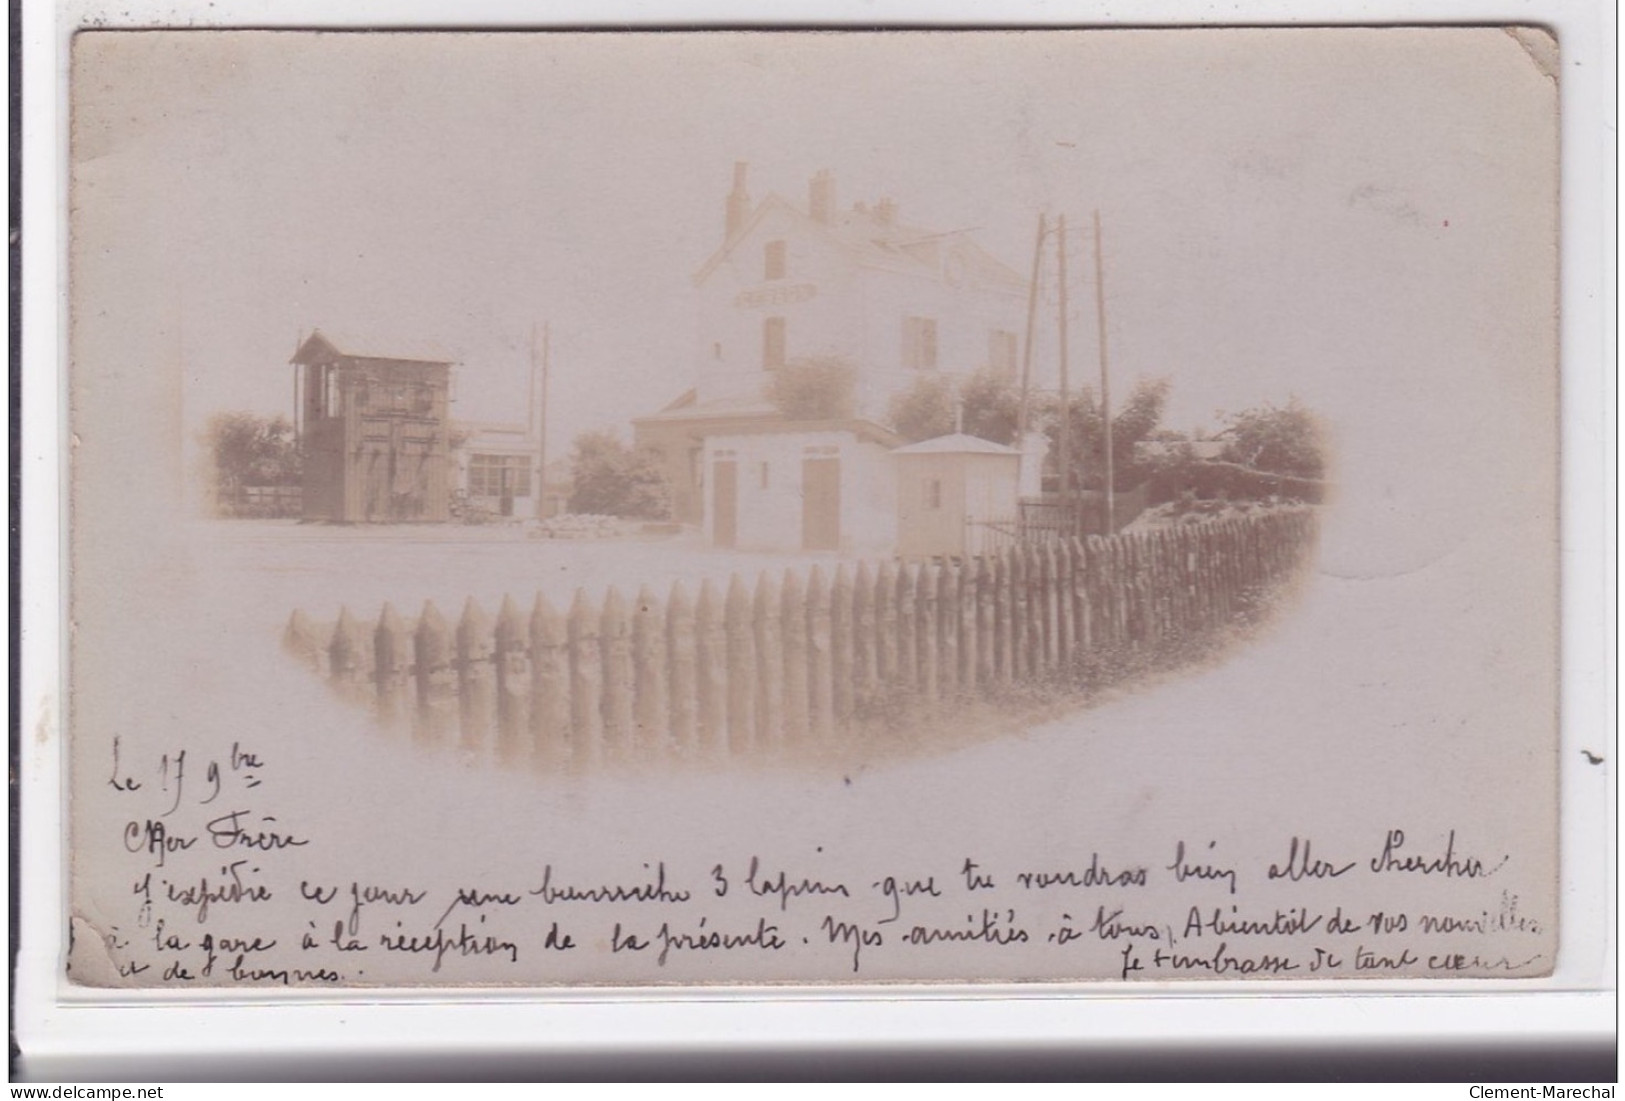 Le 17 9bre
Cher Frère
J'expédie ce jour une bourriche 3 lapins que tu voudras bien aller chercher
à la gare à la réception de la présente. Mes amitiés à tous, A bientôt de vos nouvelles
et de bonnes. Je t'embrasse de tout cœur
delcampe.net
Clement-Marechal